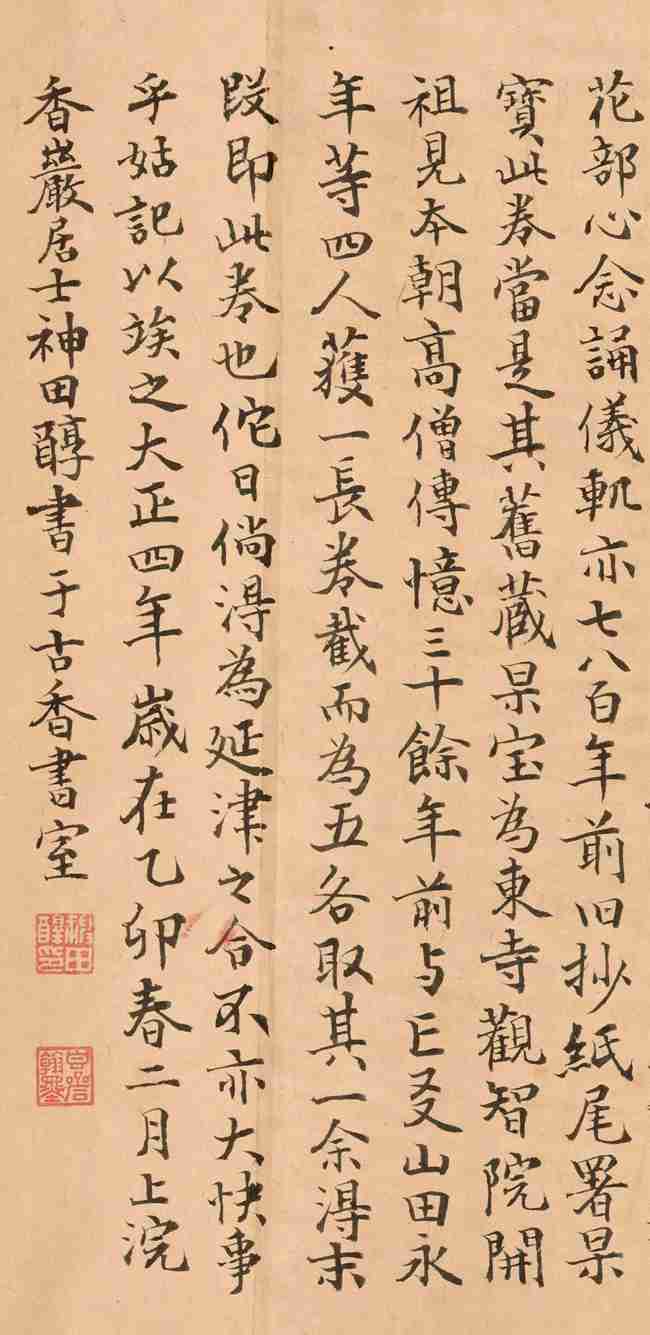 花部心念誦儀軌亦七八百年前旧抄紙尾署杲
寶此卷當是其舊蔵杲宝為東寺觀智院開
祖見本朝高僧傳憶三十餘年前与亡友山田永
年等四人獲一長卷截而為五各取其一余得末
段即此卷也佗日倘得為延津之合不亦大快事
乎姑記以竢之大正四年歳在乙卯春二月上浣
香巖居士神田醇書于古香書室
神田醇印